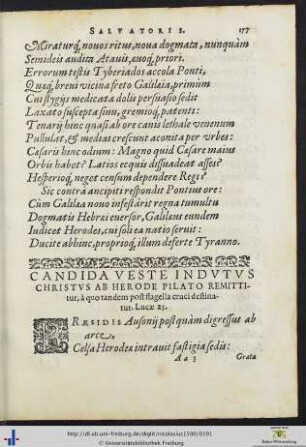 SALVATORIS. 177
Miraturq́, nouos ritus, noua dogmata, nunquàm
Semideis audita Atauis, æuoq́, priori.
Errorum testis Tyberiados accola Ponti,
Queq́, breui vicina freto Galilaia, primùm
Cui stygijs medicata dolis persuasio sedit
Laxato suscepta sinu, gremioq́, patenti:
Tenarij hinc quasi ab ore canis lethale venenum
Pullulat, & medias crescunt aconita per vrbes:
Cæsaris hinc odium: Magno quid Cæsare maius
Orbis habet? Latios ecquis dissuadeat asses?
Hesperioq́, neget censum dependere Regi?
Sic contrà ancipiti respondit Pontius ore:
Cùm Galilæa nouo infestârit regna tumultu
Dogmatis Hebræi euersor, Galilæus eundem
Iudicet Herodes, cui soli ea natio seruit:
Ducite abhinc, proprioq́, illum deferte Tyranno.
CANDIDA VESTE INDVTVS
CHRISTVS AB HERODE PILATO REMITTI-
tur, à quo tandem post flagella cruci destina-
tur. Lucæ 23.
PRÆSIDIS Ausonij postquàm digressus ab
arce,
Celsa Herodea intrauit fastigia sedis:
Aa 3 Grata
http://digi.ub.uni-heidelberg.de/diglit/nicolausius1590/0191
© Universitätsbibliothek Heidelberg
Baden-Württemberg